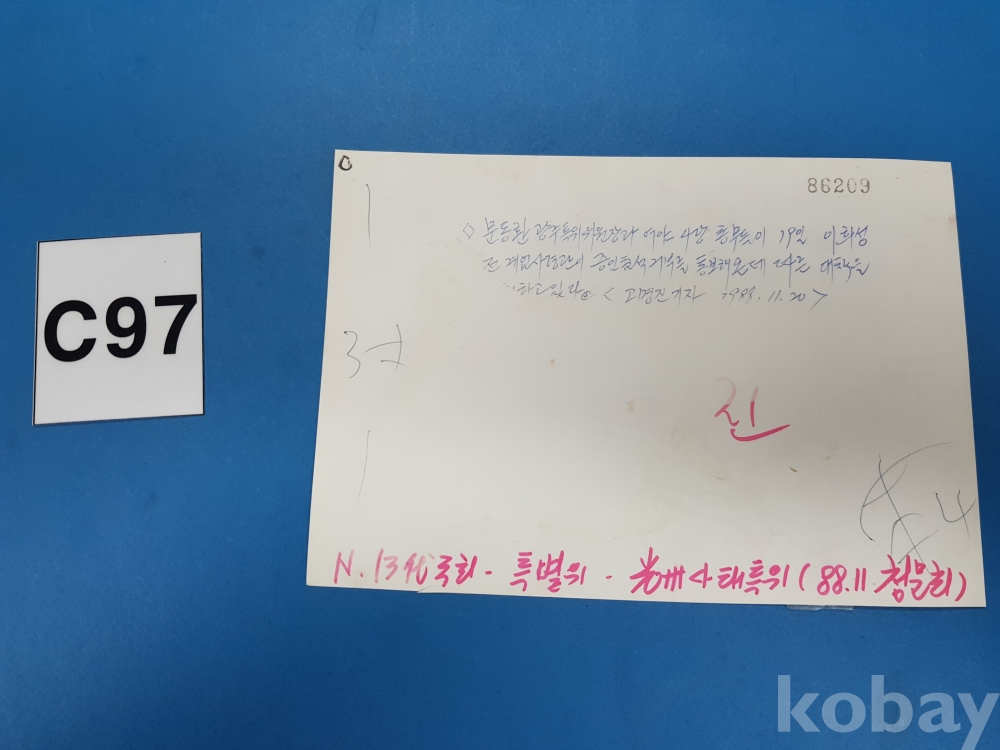 C97
86209
◇ 문동환 광주특위위원장과 여야 4당 총무들이 19일 이희성
전 계엄사령관이 증인출석거부를 통보해온데 따른 대책을
하고 있다. < 기자 1988. 11. 20 >
3단
진
4
N. 13代 국회 - 특별위 - 光州사태특위 (88.11 청문회)
kobay